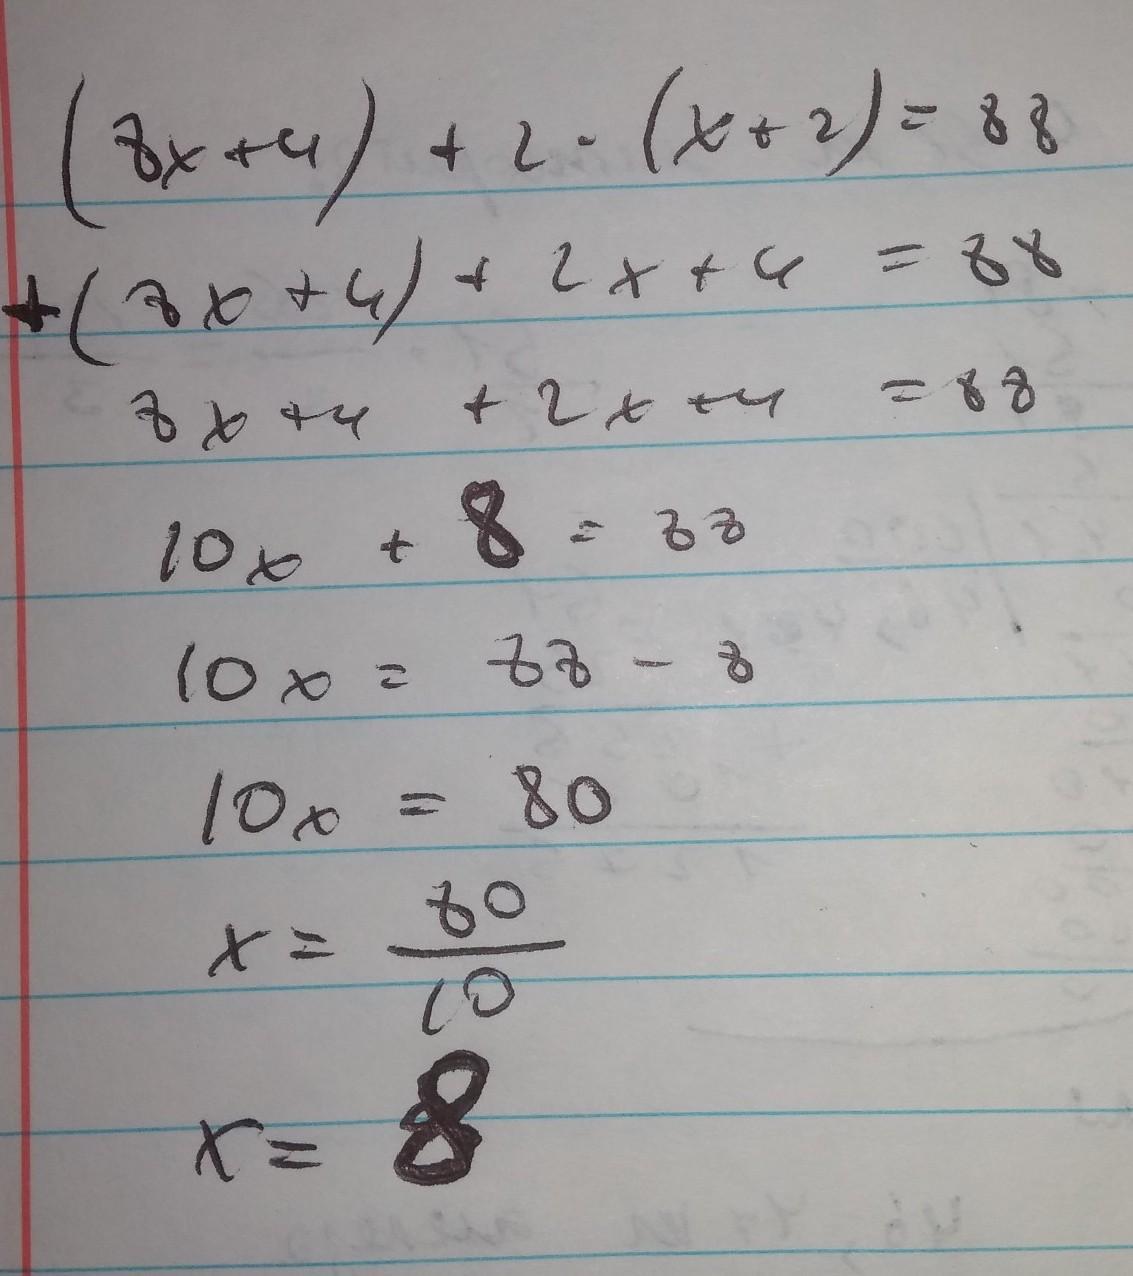 (8x+4) + 2 · (x+2) = 88
+(8x+4) + 2x+4 = 88
8x+4 + 2x+4 = 88
10x + 8 = 88
10x = 88 - 8
10x = 80
x = 80/10
x = 8